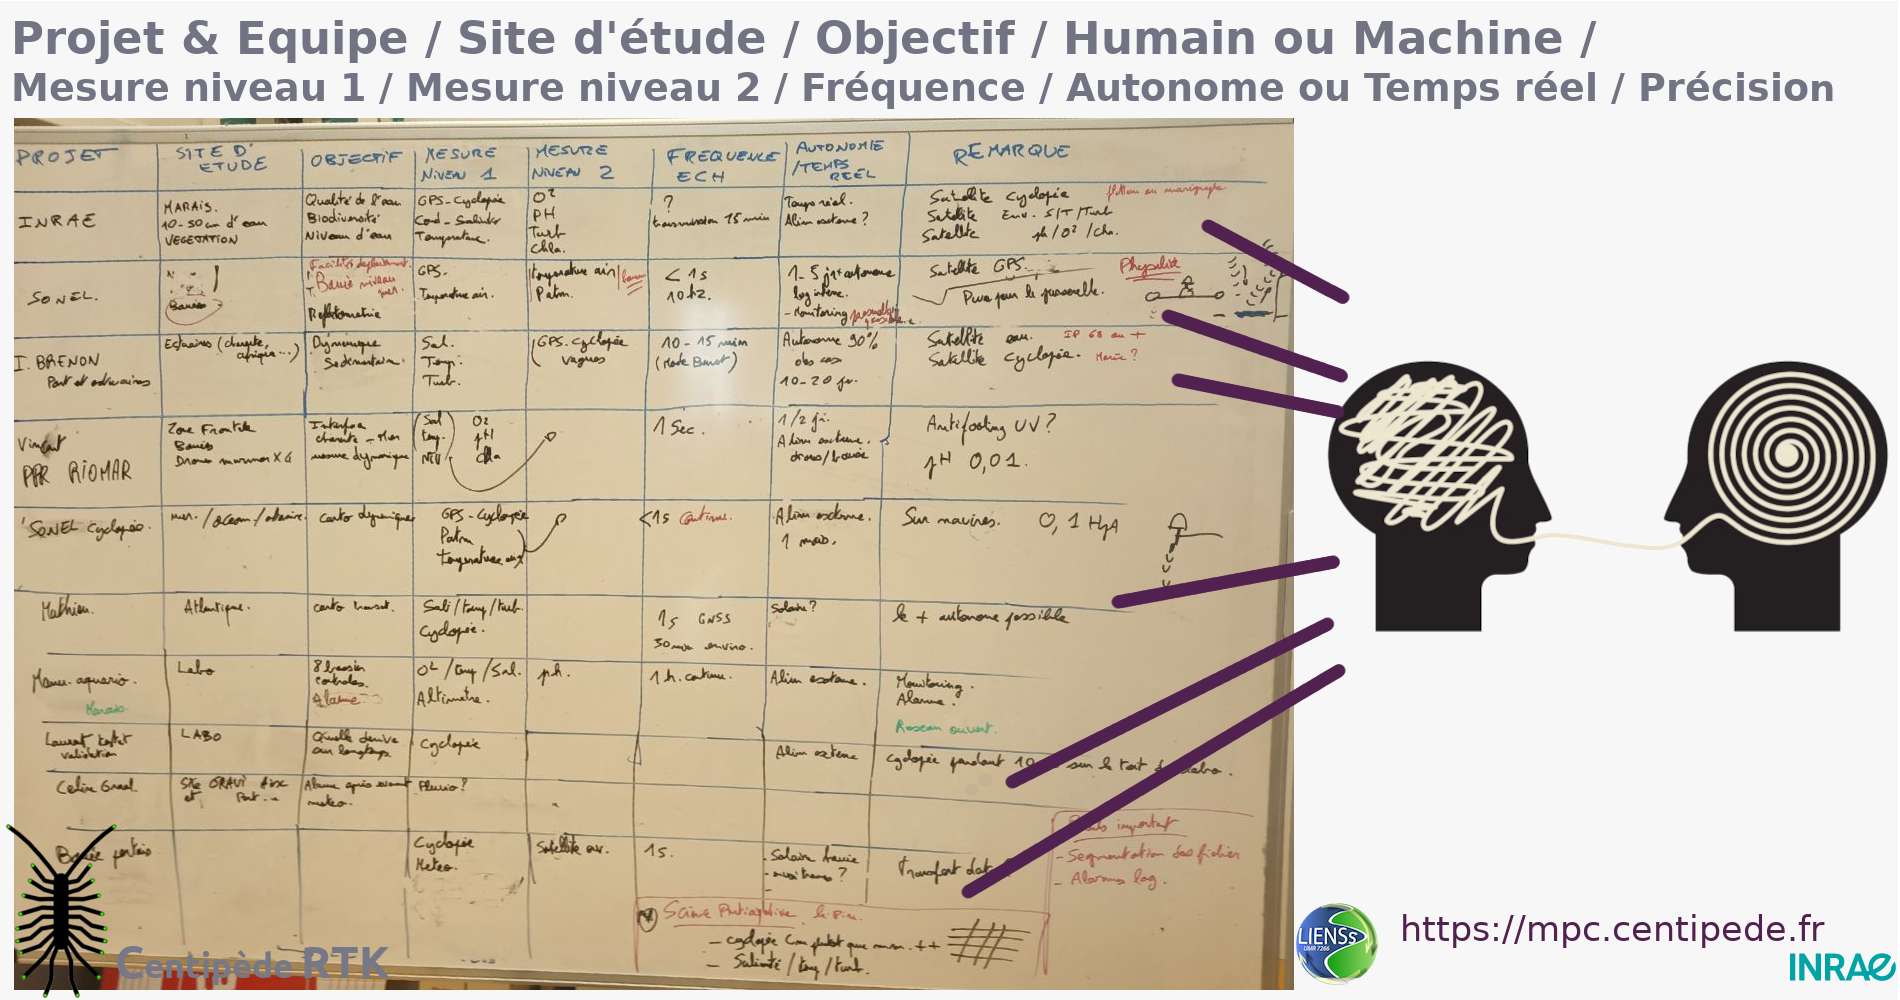 Projet & Equipe / Site d'étude / Objectif / Humain ou Machine /
Mesure niveau 1 / Mesure niveau 2 / Fréquence / Autonome ou Temps réel / Précision
PROJET
SITE D'
ETUDE
OBJECTIF
MESURE
NIVEAU 1
MESURE
NIVEAU 2
FREQUENCE
ECH
AUTONOMIE
/TEMPS
REEL
REMARQUE
INRAE
MARAIS.
10-50cm d'eau
VEGETATION
Qualité de l'eau
Biodiversité
Niveau d'eau
GPS-Cyclopée
Cond - Salinité
Température.
O²
PH
Turb
Chla.
?
transmission 15 min
Temps réel.
Alim externe ?
Satellite Cyclopée
Satellite Env. S/T/Turb
Satellite ph/O²/Cha.
SONEL.
Bouées
Bouée niveau
mer.
Reflectometrie
GPS.
Température air.
température air
Patm.
< 1s
10hz.
1-5 jrs autonome
log interne.
- Monitoring
Satellite GPS.
Pure pour la passerelle.
I. BRENON
Port et estuaires
Estuaires (charente,
Dynamique
Sedimentaire.
Sal.
Temp.
Turb.
GPS. cyclopée
vagues
10 - 15 min
(Mode Burst)
Autonome 90%
des cas
10-20 jr.
Satellite eau.
IP 68 au +
Satellite Cyclopée.
Marée ?
Vincent
PPR RIOMAR
Zone Frontale
Bouées
Drones marines X 6
Interface
charente - Mer
mesure dynamique
Sal
temp.
O2
pH
Cha
1 Sec.
1/2 jr.
Alim externe.
drone/bouée
Antifooling UV ?
pH 0,01.
SONEL cyclopée.
mer. / océan /
carto dynamique
GPS-Cyclopée
Patm
température air
<1s continue.
Alim externe.
1 mois.
Sur navires.
0,1 HPA
Mathieu.
Atlantique.
Sali/temp/turb.
Cyclopée.
1s GNSS
30 min enviro.
Solaire ?
le + autonome possible
Manu. aquario.
Labo
8 bassin
controles.
Alarme
O² / temp / Sal.
Altimetre.
p.h.
1 h. continue.
Alim externe.
Monitoring.
Alarme.
Reseau ouvert.
Laurent
validation
LABO
Quelle derive
sur longtemps.
Cyclopée
Alim externe
cyclopée pendant 10
sur le toit
Celine
Site
et Port...
Alarme après
meteo.
Pluvio ?
Bouée pertuis
Cyclopée
Meteo.
Satellite
1s.
- Solaire bouée
Transfert
important
- Segmentation des fichier
- Alarmes log.
Science Participative
- Salinité / temp / turb.
Centipède RTK
LIENSs
UMR 7266
https://mpc.centipede.fr
INRAE